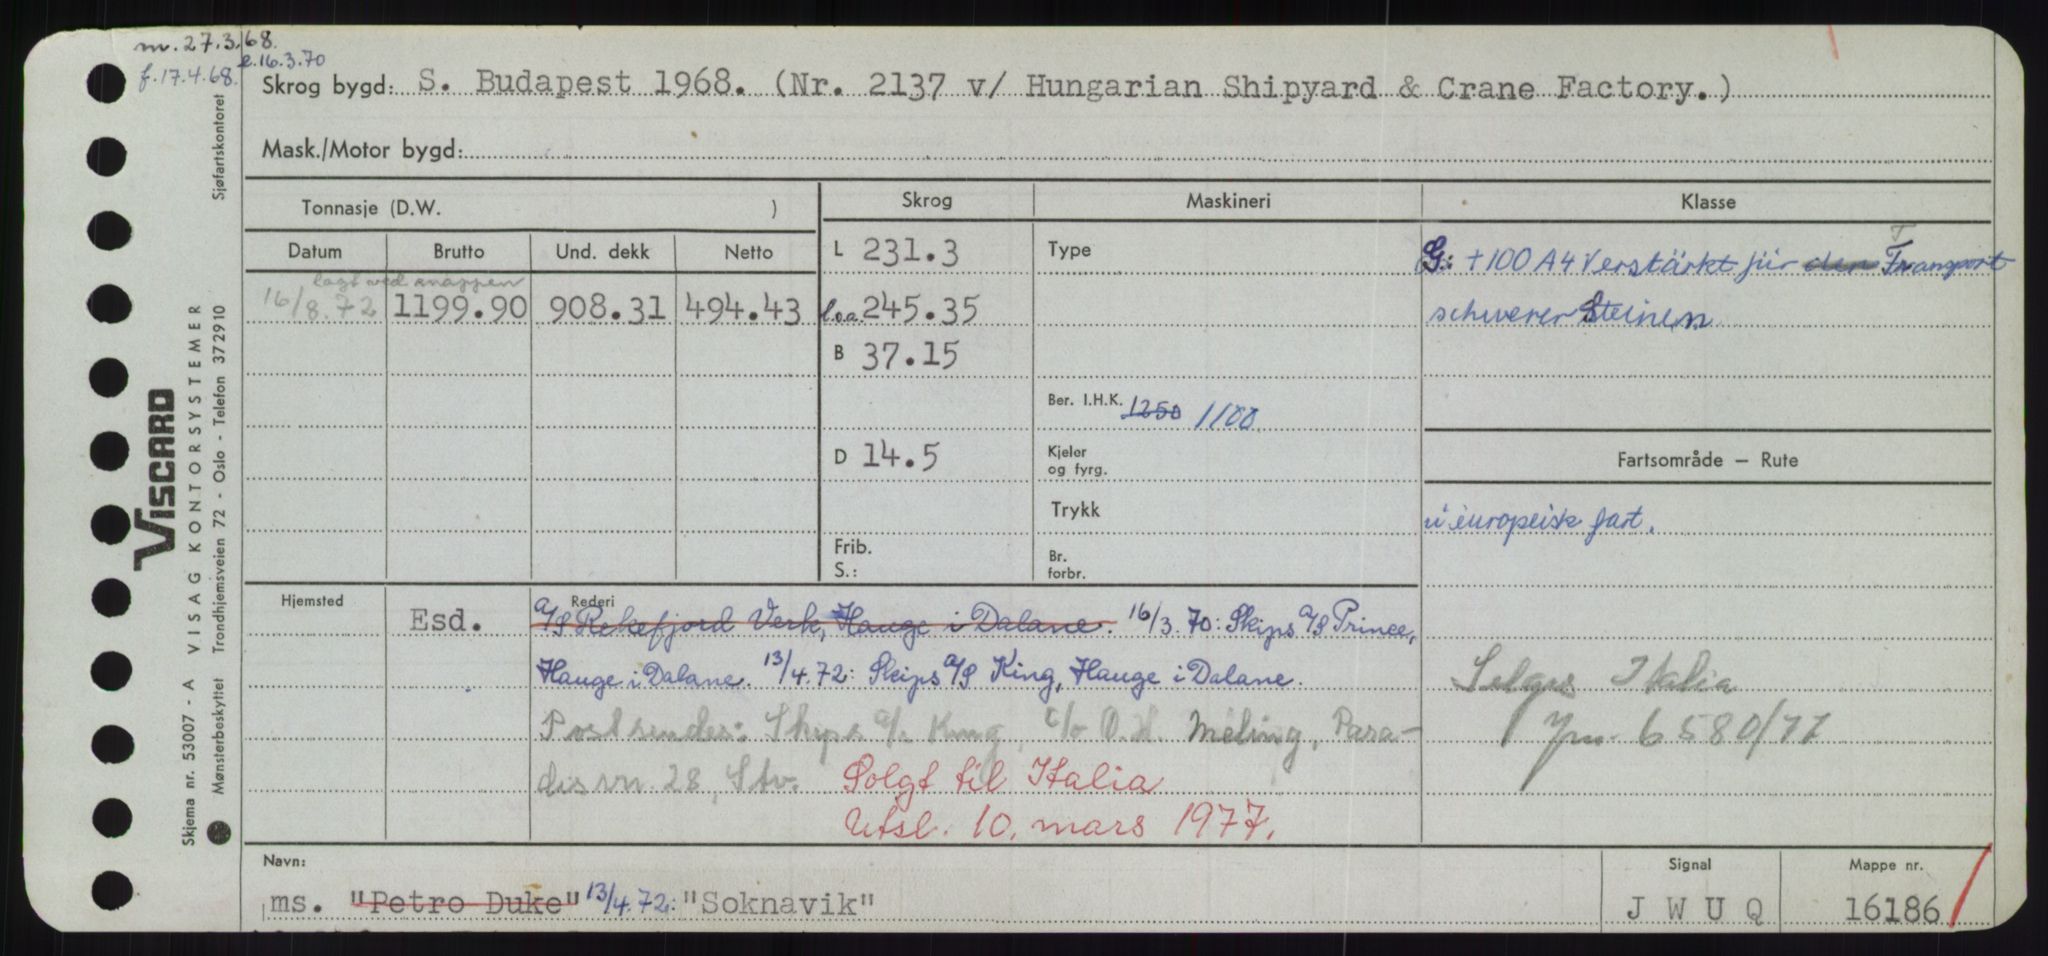 m. 27.3.68.
e.16.3.70
f. 17.4.68.
Skrog bygd: S. Budapest 1968. (Nr. 2137 v/ Hungarian Shipyard & Crane Factory.)
Mask./Motor bygd:
Tonnasje (D.W. )
Skrog
Maskineri
Klasse
Datum
Brutto
Und. dekk
Netto
lagt ved mappen
16/8.72
1199.90
908.31
494.43
L 231.3
l.o.a. 245.35
B 37.15
D 14.5
Frib.
S.:
Type
Ber. I.H.K. 1250 1100
Kjeler
og fyrg.
Trykk
Br.
forbr.
G: +100 A4 Verstärkt für den Transport
schwerer Steinen
Fartsområde – Rute
i europeisk fart.
Selges Italia
6580/77
Hjemsted
Esd.
Rederi
A/S Rekefjord Verk, Hauge i Dalane. 16/3.70: Skips A/S Prince,
Hauge i Dalane. 13/4.72: Skips A/S King, Hauge i Dalane.
Post sendes: Skips A/S King, c/o O.H. Meling, Para-
disvn. 28, Stv. Solgt til Italia
Utsl. 10. mars 1977.
Navn:
ms. "Petro Duke" 13/4.72: "Soknavik"
Signal
J W U Q
Mappe nr.
16186
VISCARD
VISAG KONTORSYSTEMER
Skjema nr. 53007 - A
Mønsterbeskyttet Trondhjemsveien 72 - Oslo - Telefon 372910 Sjøfartskontoret